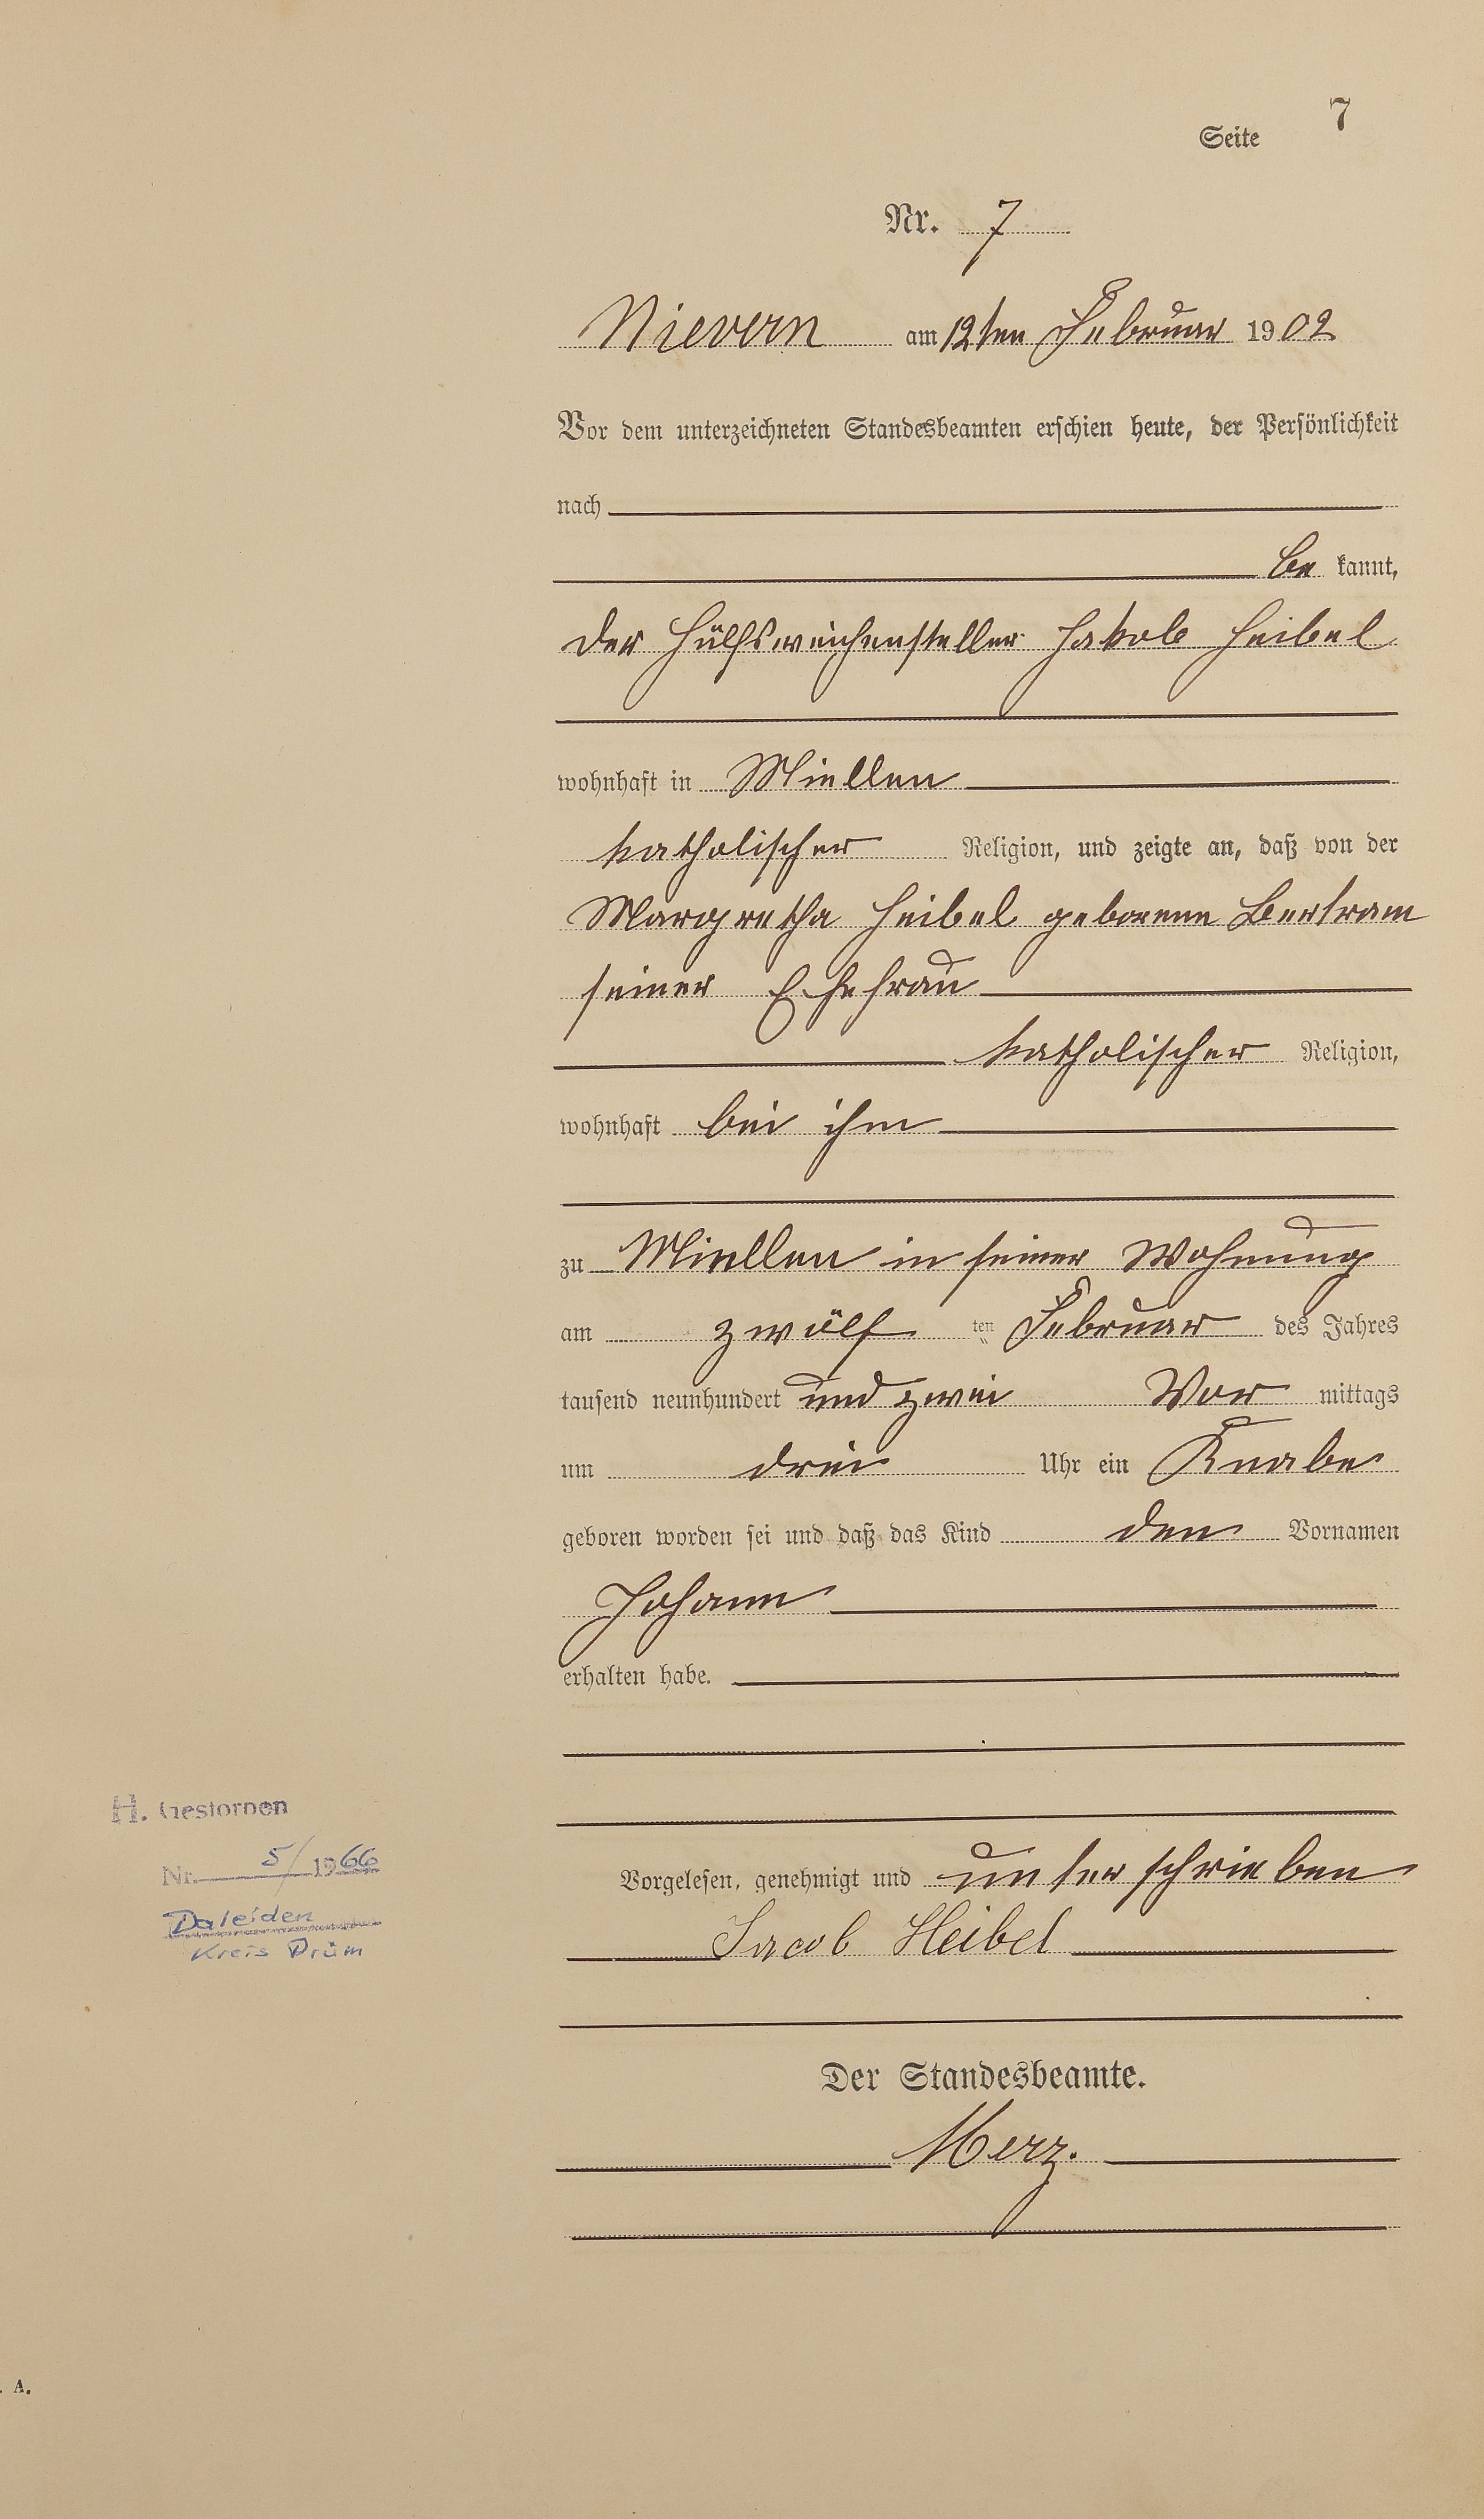 Seite 7
Nr. 7
Nievern am 12ten Februar 1902
Vor dem unterzeichneten Standesbeamten erschien heute, der Persönlichkeit
nach
be kannt,
der Hülfsweichensteller Jakob Heibel
wohnhaft in Miellen
katholischer Religion, und zeigte an, daß von der
Margretha Heibel geborene Bertram
seiner Ehefrau
katholischer Religion,
wohnhaft bei ihm
zu Miellen in seiner Wohnung
am zwölf ten Februar des Jahres
tausend neunhundert und zwei Vor mittags
um drei Uhr ein Knabe
geboren worden sei und daß das Kind den Vornamen
Johann
erhalten habe.
Vorgelesen, genehmigt und unterschrieben
Jacob Heibel
Der Standesbeamte.
Merz.
H. Gestorben
Nr. 5/1966
Daleiden
Kreis Prüm
. A.